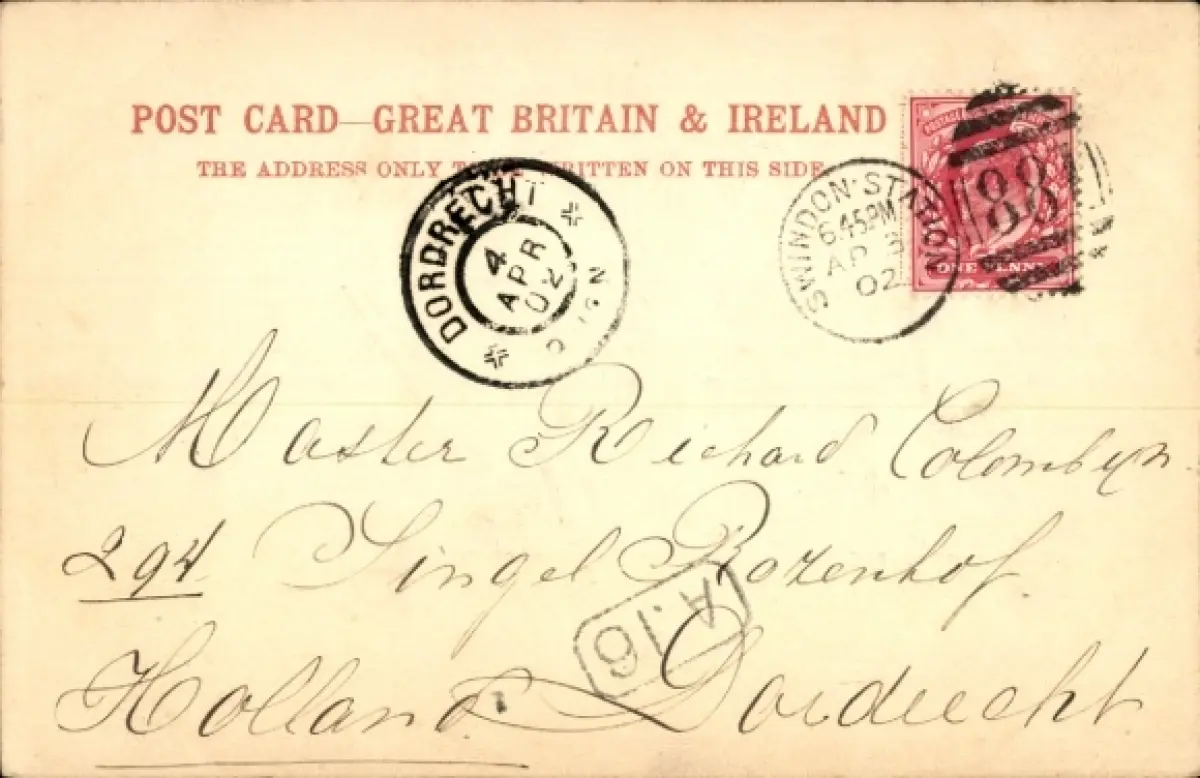 POST CARD—GREAT BRITAIN & IRELAND
THE ADDRESS ONLY WRITTEN ON THIS SIDE
DORDRECHT
4
APR
02
SWINDON·STATION
6.45PM
AP 3
02
88
ONE PENNY
Master Richard Colombyn
294 Singel Rozenhof.
A.16
Holland. Dordrecht